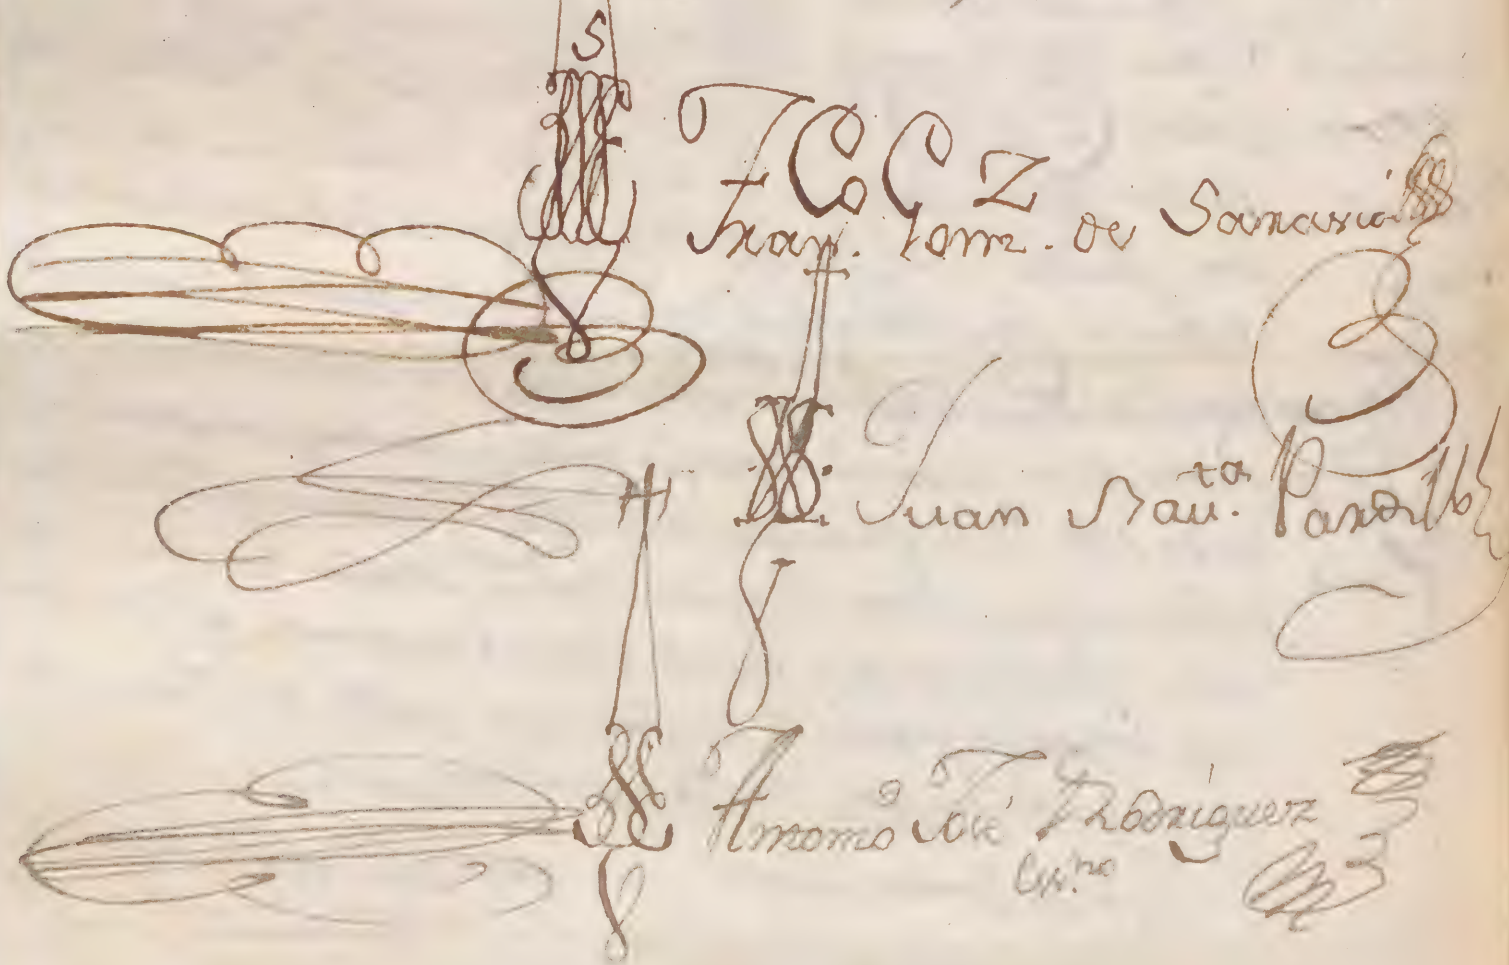 S
Fran. Gomz. de Sanaria
Juan Bau.ta Pardillo
Antonio José Rodriguez
Ess.no